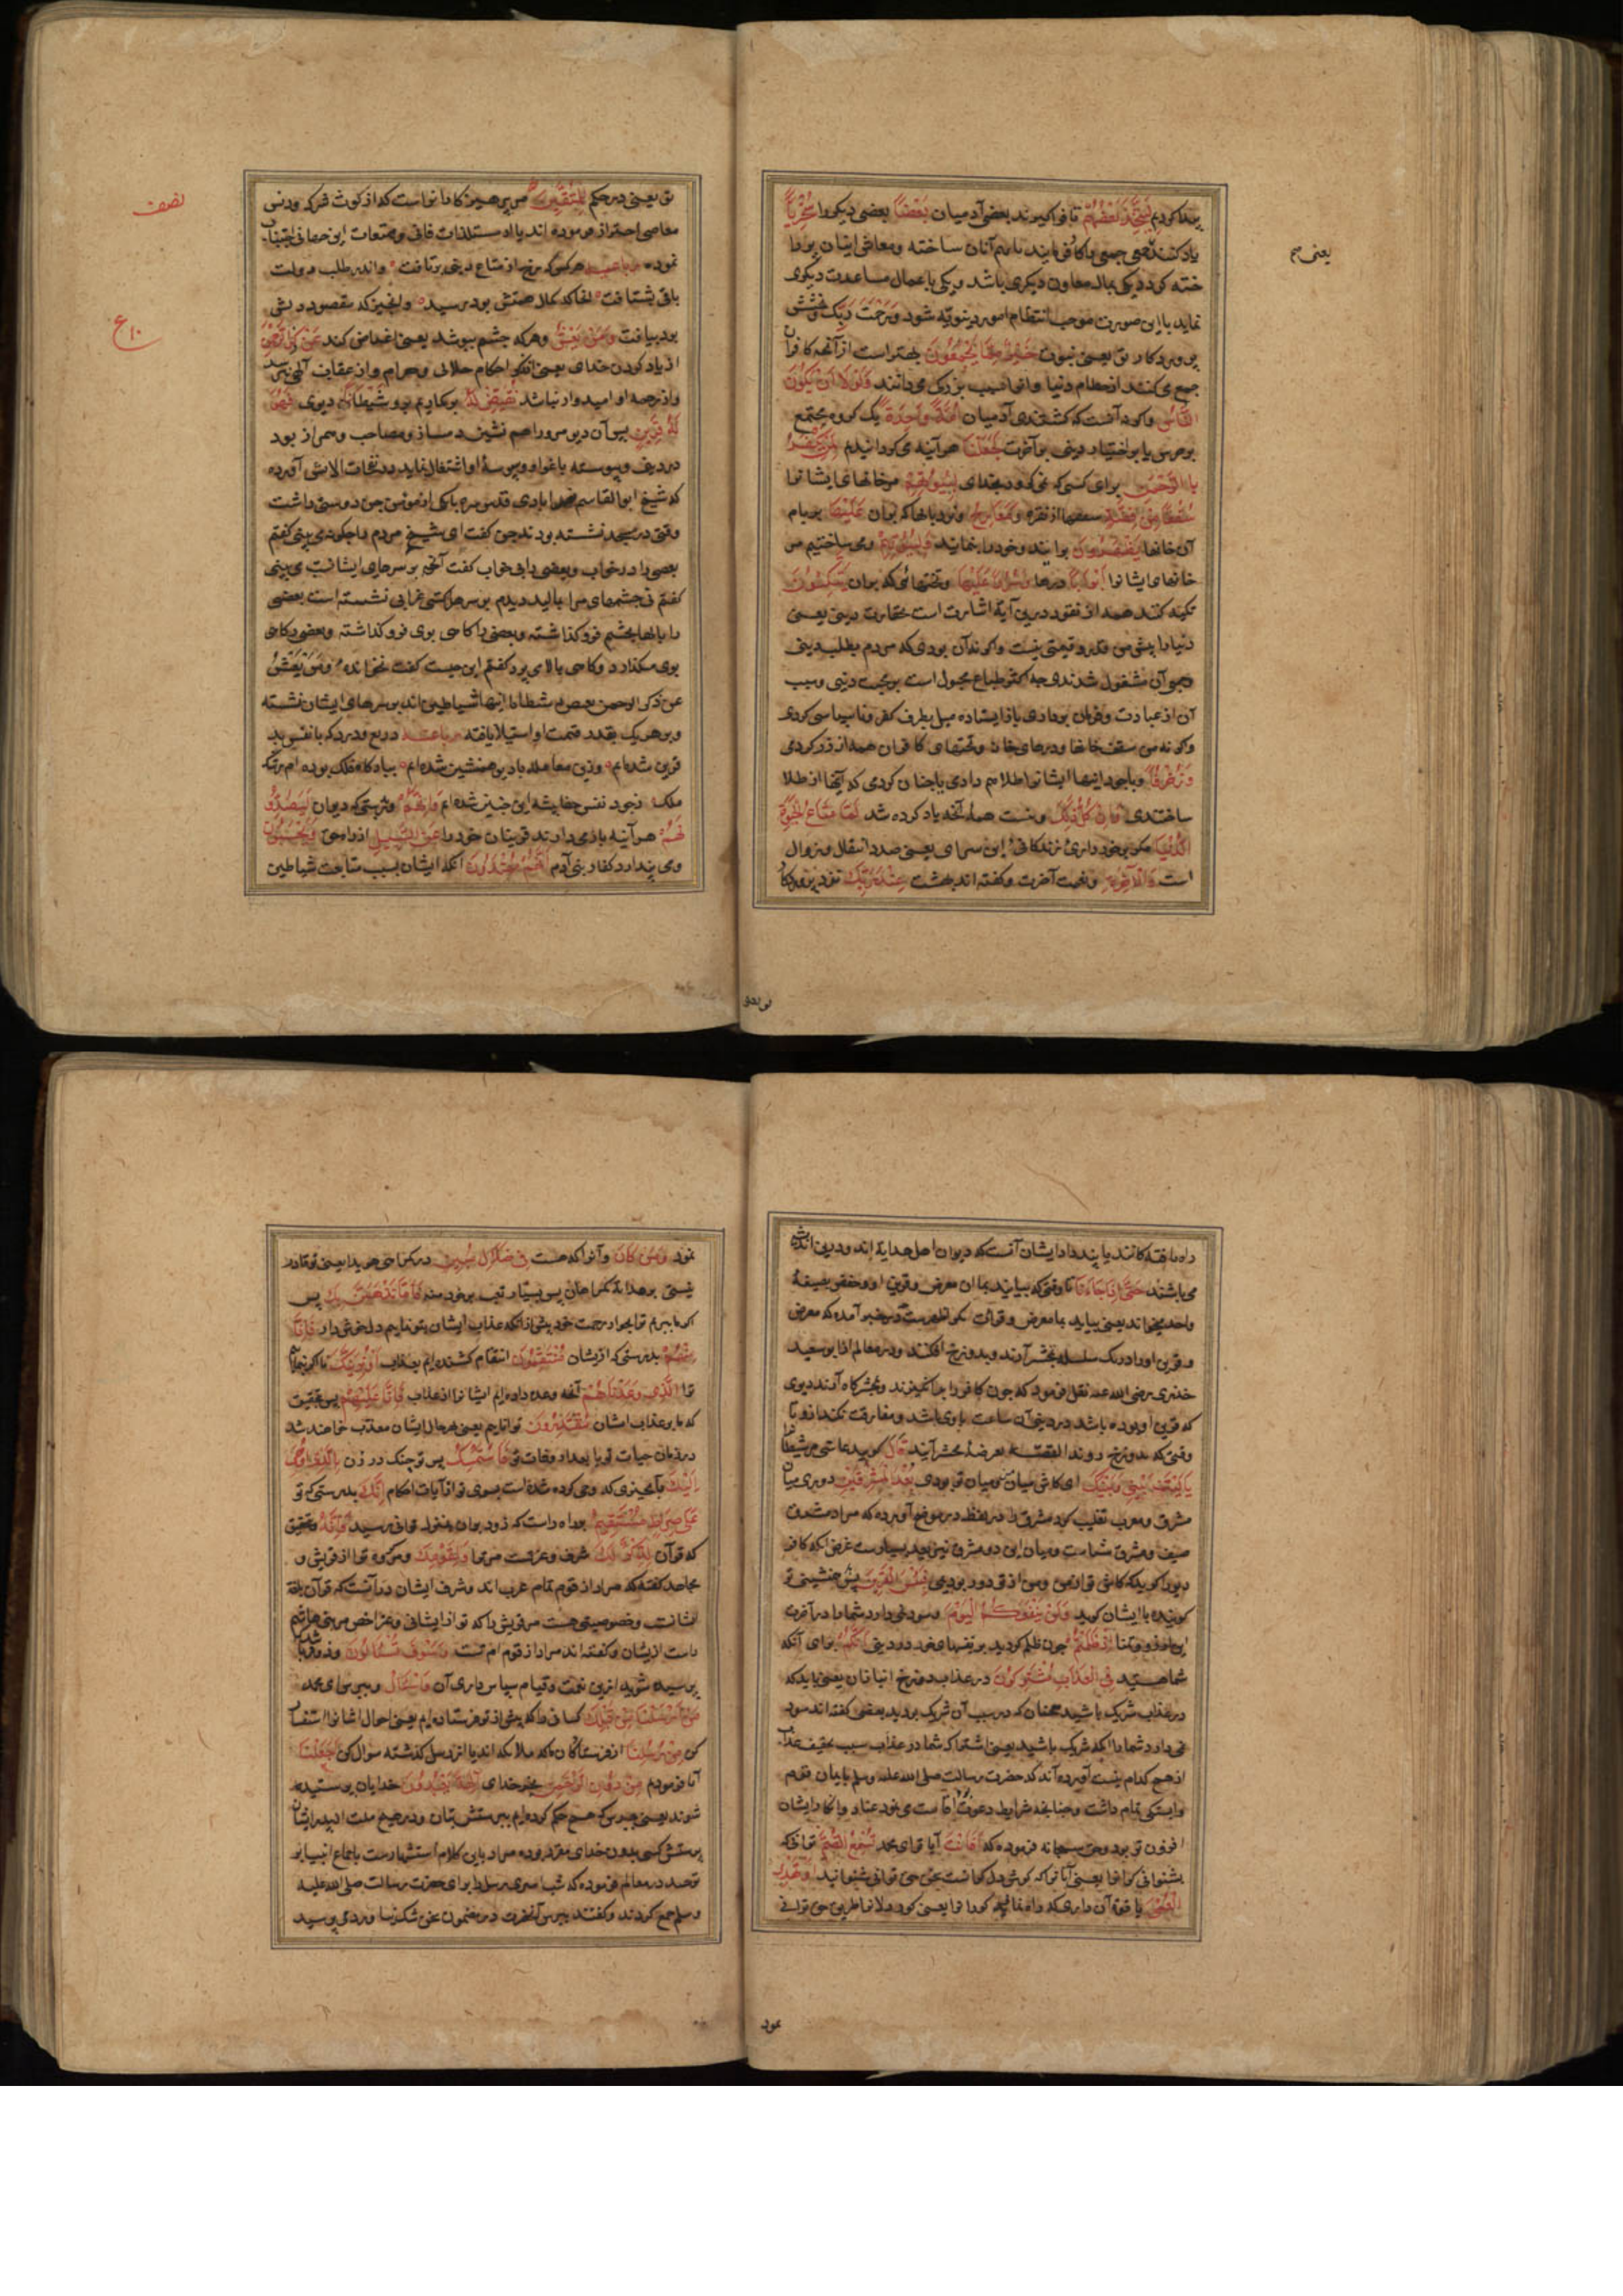 پیدا کردیم لِيَتَّخِذَ بَعْضُهُمْ تا فرا گیرند بعضی آدمیان بَعْضًا بعضی دیگر را سُخْرِيًّا
یعنی
خته کرد دیکی بمال معاون دیگری باشد و یکی باعمال مساعدت دیگری
نماید با این صورت موجب انتظام امور دینویه شود وَرَحْمَتُ رَبِّكَ و بخشش
پروردکار تو یعنی نبوت خَيْرٌ مِمَّا يَجْمَعُونَ بهتر است از آنچه کافران
جمع می کنند از حطام دنیا و انرا سبب بزرکی می دانند وَلَوْلَا أَنْ يَكُونَ
النَّاسُ و اکر نه آنست که کشتندی آدمیان أُمَّةً وَاحِدَةً یک کروه مجتمع
بر حرص یا بر اختیار دنیی بر آخرت لَجَعَلْنَا هر آینه می کردانیدم لِمَنْ يَكْفُرُ
بِالرَّحْمٰنِ برای کسی که نمی کرود بخدای لِبُيُوتِهِمْ مر خانهای ایشانرا
سُقُفًا مِنْ فِضَّةٍ سقفها از نقره وَمَعَارِجَ و نردبانها که بران عَلَيْهَا بر بام
آن خانها يَظْهَرُونَ برایند و خود را بنمایند وَلِبُيُوتِهِمْ و می ساختیم مر
خانهای ایشانرا أَبْوَابًا درها وَسُرُرًا عَلَيْهَا و تختهائی که بران يَتَّكِئُونَ
تکیه کنند همه از نقره و درین آیة اشارت است حقارت دینی یعنی
دنیا را پیش من قدر و قیمتی نیست و اکر نه آن بودی که مردم بطلب دینی
آن از عبادت و فرمان برداری باز ایستاده میل بطرف کفر و ناسپاسی کردی
و کر نه من سقف خانها و درهای خانه و تختهای کافران همه از زر کردمی
وَزُخْرُفًا و با وجود اینها ایشانرا طلا هم دادی یا چنان کردمی که اینها از طلا
ساختندی وَإِنْ كُلُّ ذٰلِكَ و نیست همه آنچه یاد کرده شد لَمَّا مَتَاعُ الْحَيٰوةِ
الدُّنْيَا مکر برخورداری زندکانی این سرای یعنی صدد انتقال و زوال
است وَالْآخِرَةُ و نعمت آخرت و کفته اند بهشت عِنْدَ رَبِّكَ نزد پروردکار
تو یعنی
تو یعنی در حکم لِلْمُتَّقِينَ مر پرهیز کارانراست که از کوث شرک و دنس
نصف
معاصی احتراز فرموده اند یا از مستلذات فانی و متمتعات این جهانی اجتناب
نموده رباعیه هر کس که رخ از متاع دنیی برتافت و اندر طلب دولت
باقی بشتافت انجا که کمال همتش بود برسید و انچیز که مقصود دلش
بود بیافت وَمَنْ يَعْشُ و هر که چشم بپوشد یعنی اغماض کند عَنْ ذِكْرِ الرَّحْمٰنِ
ع ۱۰
از یاد کردن خدای یعنی انکو احکام حلال و حرام و از عقاب الهی نترسد
و از رحمة او امیدوار نباشد نُقَيِّضْ لَهُ برکماریم برو شَيْطَانًا دیوی فَهُوَ
لَهُ قَرِينٌ پس آن دیو مرو را هم نشین دمساز و مصاحب و همراز بود
که شیخ ابو القاسم قدس سره با یکی از مؤمنی جن دوستی داشت
وقتی در مسجد نشسته بودند جن کفت ای شیخ مردم را چکونه می بینی کفتم
بعضی را در خواب و بعضی را بی خواب کفت آنچه بر سرهای ایشانست می بینی
کفتم نی چشمهای مرا بمالید دیدم بر سر هر کسی غرابی نشسته است بعضی
را بالها بچشم فرو کذاشته و بعضی را کاهی بوی فرو کذاشته و بعضی کاهی
بوی میکذارد و کاهی بالا می برد کفتم این چیست کفت نخوانده وَمَنْ يَعْشُ
عن ذكر الرحمن نقیض له شیطانا اینها شیاطین اند بر سرهای ایشان نشسته
و بر هر یک بقدر غفلت او استیلا یافته رباعیه دریغ و درد که با نفس بد
قرین شده ام وزین معامله با دیو همنشین شده ام ببارگاه فلک بوده ام رشک
ملک زجود نفس جفا پیشه این چنین شده ام وَإِنَّهُمْ و بدرستی که دیوان لَيَصُدُّو
نَهُمْ هر آینه باز می دارند قرینان خود را عَنِ السَّبِيلِ از راه حق وَيَحْسَبُونَ
و می پندارد کفار بنی آدم أَنَّهُمْ مُهْتَدُونَ آنکه ایشان بسبب متابعت شیاطین
راه یافتکانند یا پندار ایشان آنست که دیوان اهل هدایة اند و درین اندیشه
می باشند حَتَّى إِذَا جَاءَنَا تا وقتی که بیایند بما ان معرض و قرین او و حفص بصیغهٔ
واحد میخواند یعنی بیاید بما معرض و در خبر آمده که معرض
و قرین او را در یک سلسله بحشر آرند و بدوزخ افکنند و در معالم از ابو سعید
خدری رضی الله عنه نقل فرمود که چون کافر را بر انکیزند و بحشرکاه آرند دیوی
که قرین او بوده باشد در دینی آن ساعت با وی باشد و مفارقت نکند ازو تا
وقتی که بدوزخ روند القصه بعرضهٔ محشر آیند قَالَ کوید عاشی مر شیطانرا
يَا لَيْتَ بَيْنِي وَبَيْنَكَ ای کاش میان من و میان تو بودی بُعْدَ الْمَشْرِقَيْنِ دوری میان
مشرق و مغرب تغلیب کرد مشرق را در لفظ
دیو را کوید که کاش تو از من و من از تو دور بودیمی فَبِئْسَ الْقَرِينُ پس بد همنشینی تو
کوینده با ایشان کوید وَلَنْ يَنْفَعَكُمُ الْيَوْمَ و سود نمی دارد شما را در آخرت
این آرزو و تمنا إِذْ ظَلَمْتُمْ چون ظلم کردید بر نفسهای خود در دینی أَنَّكُمْ برای آنکه
شما هستید فِي الْعَذَابِ مُشْتَرِكُونَ در عذاب دوزخ انبازان یعنی باید که
در عذاب شریک باشید همچنان که در سبب آن شریک بودید بعضی کفته اند سود
نمی دارد شما را انکه شریک باشید یعنی اشتراک شما در عذاب سبب تخفیف عذاب
از هیچ کدام نیست آورده اند که حضرت رسالت صلی الله علیه وسلم بایمان قوم
افزون تر بود حق سبحانه فرموده که أَفَأَنْتَ آیا تو ای محمد تُسْمِعُ الصُّمَّ توانی که
بشنوانی کرانرا یعنی آیا تو که کوش دل کرانست سخن حق توانی شنوانید أَوْ تَهْدِي
الْعُمْيَ یا قوة آن داری که راه نمائی کورانرا یعنی کور دلانرا طریق حق توانی
نمود
نمود وَمَنْ كَانَ و آنرا که هست فِي ضَلَالٍ مُبِينٍ در کمراهی هویدا یعنی تو قادر
نیستی بر هدایة کمراهان پس بسیار تعب بر خود منه فَإِمَّا نَذْهَبَنَّ بِكَ پس
اکر ما ببریم ترا بجوار رحمت خود پیش از انکه عذاب ایشان بتو نمایم دل خوش دار فَإِنَّا
مِنْهُمْ بدرستی که ازیشان مُنْتَقِمُونَ انتقام کشنده ایم بعذاب أَوْ نُرِيَنَّكَ یا اکر بنمایم
ترا الَّذِي وَعَدْنَاهُمْ آنچه وعده داده ایم ایشانرا از عذاب فَإِنَّا عَلَيْهِمْ پس بتحقیق
که ما بر عذاب ایشان مُقْتَدِرُونَ تواناییم یعنی بهر حال ایشان معذب خواهند شد
در زمان حیات تو یا بعد از وفات تو فَاسْتَمْسِكْ پس تو چنک در زن بِالَّذِي أُوحِيَ
إِلَيْكَ بآنچیزی که وحی کرده شده است بسوی تو از آیات احکام إِنَّكَ بدرستی که تو
عَلَى صِرَاطٍ مُسْتَقِيمٍ براه راست که زود بران بمنزل توانی رسید وَإِنَّهُ و بتحقیق
که قرآن لَذِكْرٌ لَكَ شرف و عزتست مر ترا وَلِقَوْمِكَ و مر کروه ترا از قریش و
مجاهد کفته که مراد از قوم تمام عرب اند و شرف ایشان در آنست که قرآن بلغة
ایشانست و خصوصیتی هست مر قریش را که تو از ایشانی و عز اخص مر بنی هاشم
راست ازیشان و کفته اند مراد از قوم امّ تست وَسَوْفَ تُسْأَلُونَ و زود باشد
پرسیده شوید ازین نعمت و قیام سپاس داری آن وَاسْأَلْ و بپرس ای محمد
مَنْ أَرْسَلْنَا مِنْ قَبْلِكَ کسانی را که پیش از تو فرستاده ایم یعنی احوال ایشانرا استفسار
کن مِنْ رُسُلِنَا از فرستاکان ما که ملائکه اند یا از رسل کذشته سوال کن أَجَعَلْنَا
آیا فرمودیم مِنْ دُونِ الرَّحْمٰنِ بجز خدای آلِهَةً يُعْبَدُونَ خدایان پرستیده
شوند یعنی بپرس که هیچ حکم کرده ایم بپرستش بتان و در هیچ ملت از پدر ایشان
پرستش کسی بدون خدای مقرر بوده مراد باین کلام استشهادست باجماع انبیا بر
توحید در معالم فرموده که شب اسری رسل را برای حضرت رسالت صلی الله علیه
وسلم جمع کردند و کفتند بپرس آنحضرت در مضمون سخن شک نداشت و نپرسید